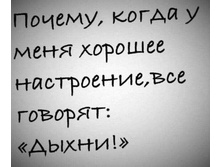 Почему, когда у
меня хорошее
настроение,все
говорят:
«Дыхни!»